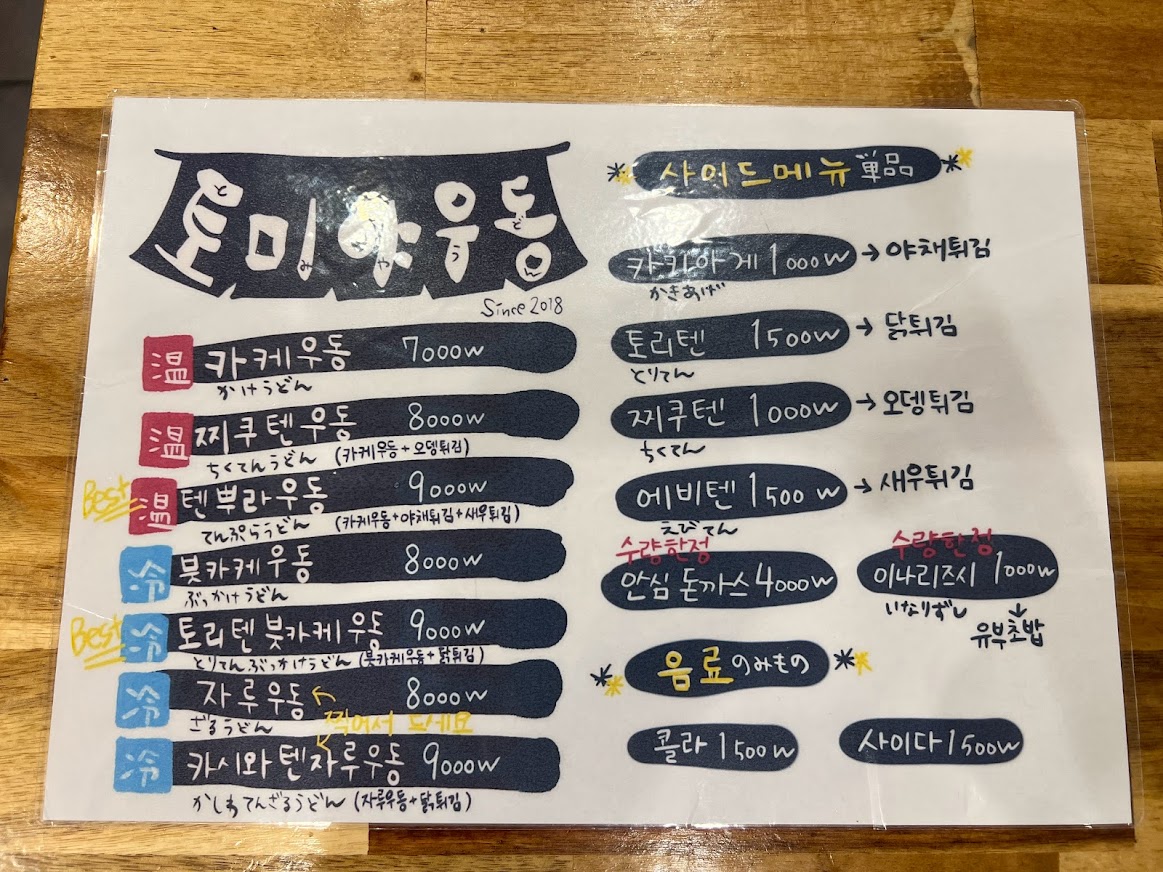 토미야우동
とみやうどん
Since 2018
温 카케우동 7000w
かけうどん
温 찌쿠텐우동 8000w
ちくてんうどん (카케우동+오뎅튀김)
Best 温 텐뿌라우동 9000w
てんぷらうどん (카케우동+야채튀김+새우튀김)
冷 붓카케우동 8000w
ぶっかけうどん
Best 冷 토리텐 붓카케우동 9000w
とりてんぶっかけうどん (붓카케우동+닭튀김)
冷 자루우동 8000w
ざるうどん 찍어서 드세요
冷 카시와텐자루우동 9000w
かしわてんざるうどん (자루우동+닭튀김)
사이드메뉴 単品
카키아게 1000w → 야채튀김
かきあげ
토리텐 1500w → 닭튀김
とりてん
찌쿠텐 1000w → 오뎅튀김
ちくてん
에비텐 1500w → 새우튀김
えびてん
수량한정
안심 돈까스 4000w
수량한정
이나리즈시 1000w
いなりずし
유부초밥
음료 のみもの
콜라 1500w
사이다 1500w